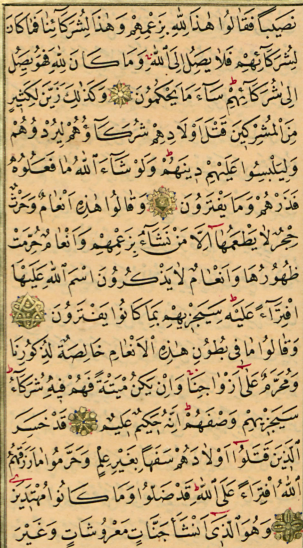 نَصِيبًا فَقَالُوا هٰذَا لِلّٰهِ بِزَعْمِهِمْ وَهٰذَا لِشُرَكَآئِنَا فَمَا كَانَ
لِشُرَكَآئِهِمْ فَلَا يَصِلُ اِلَى اللّٰهِ وَمَا كَانَ لِلّٰهِ فَهُوَ يَصِلُ
اِلٰى شُرَكَآئِهِمْ سَآءَ مَا يَحْكُمُونَ وَكَذٰلِكَ زَيَّنَ لِكَثِيرٍ
مِنَ الْمُشْرِكِينَ قَتْلَ اَوْلَادِهِمْ شُرَكَآؤُهُمْ لِيُرْدُوهُمْ
وَلِيَلْبِسُوا عَلَيْهِمْ دِينَهُمْ وَلَوْ شَآءَ اللّٰهُ مَا فَعَلُوهُ
فَذَرْهُمْ وَمَا يَفْتَرُونَ وَقَالُوا هٰذِهِ اَنْعَامٌ وَحَرْثٌ
حِجْرٌ لَا يَطْعَمُهَا اِلَّا مَنْ نَشَآءُ بِزَعْمِهِمْ وَاَنْعَامٌ حُرِّمَتْ
ظُهُورُهَا وَاَنْعَامٌ لَا يَذْكُرُونَ اسْمَ اللّٰهِ عَلَيْهَا
افْتِرَآءً عَلَيْهِ سَيَجْزِيهِمْ بِمَا كَانُوا يَفْتَرُونَ
وَقَالُوا مَا فِى بُطُونِ هٰذِهِ الْاَنْعَامِ خَالِصَةٌ لِذُكُورِنَا
وَمُحَرَّمٌ عَلٰى اَزْوَاجِنَا وَاِنْ يَكُنْ مَيْتَةً فَهُمْ فِيهِ شُرَكَآءُ
سَيَجْزِيهِمْ وَصْفَهُمْ اِنَّهُ حَكِيمٌ عَلِيمٌ قَدْ خَسِرَ
الَّذِينَ قَتَلُوا اَوْلَادَهُمْ سَفَهًا بِغَيْرِ عِلْمٍ وَحَرَّمُوا مَا رَزَقَهُمُ
اللّٰهُ افْتِرَآءً عَلَى اللّٰهِ قَدْ ضَلُّوا وَمَا كَانُوا مُهْتَدِينَ
وَهُوَ الَّذِى اَنْشَاَ جَنَّاتٍ مَعْرُوشَاتٍ وَغَيْرَ